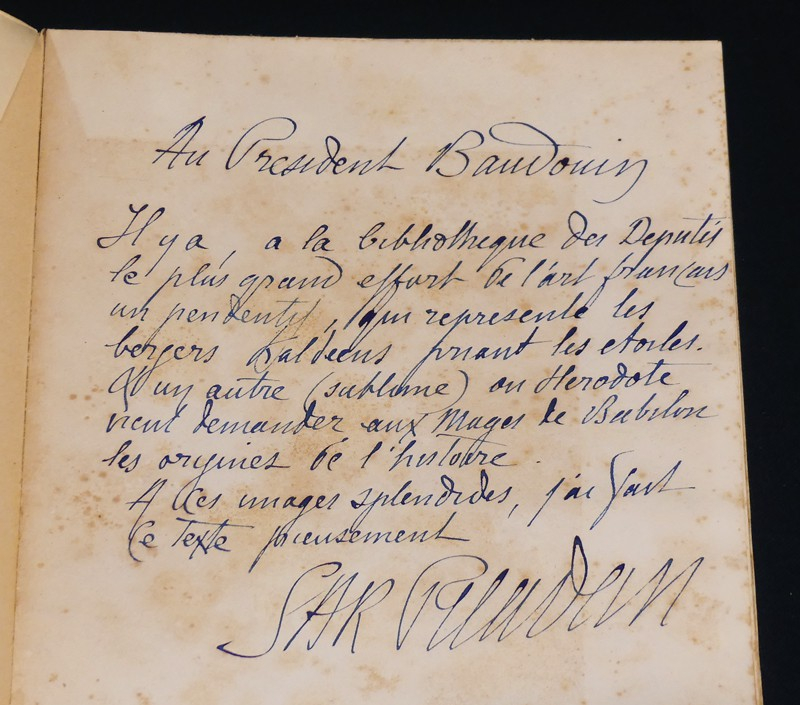 Au President Baudouin
Il y a, a la bibliotheque des Deputés
le plus grand effort de l'art français
un pendentif, qui represente les
bergers Kaldéens priant les etoiles.
& un autre (sublime) ou Herodote
vient demander aux Mages de Babilon
les origines de l'histoire.
A Ces images splendides, j'ai fait
Ce Texte pieusement
SAR Peladan